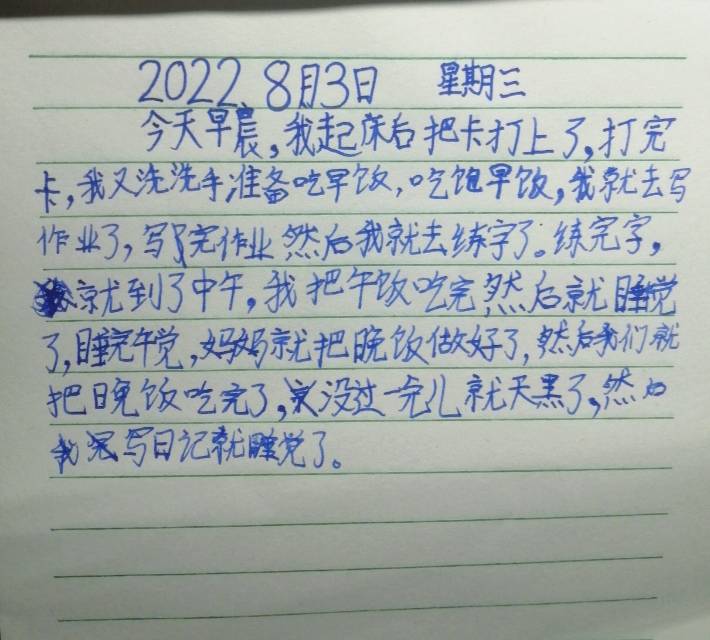 2022、8月3日 星期三
今天早晨，我起床后把卡打上了，打完
卡，我又洗洗手准备吃早饭，吃饱早饭，我就去写
作业了，写完作业然后我就去练字了。练完字，
就到了中午，我把午饭吃完然后就睡觉
了，睡完午觉，妈妈就把晚饭做好了，然后我们就
把晚饭吃完了，没过一完儿就天黑了，然后
我写日记就睡觉了。